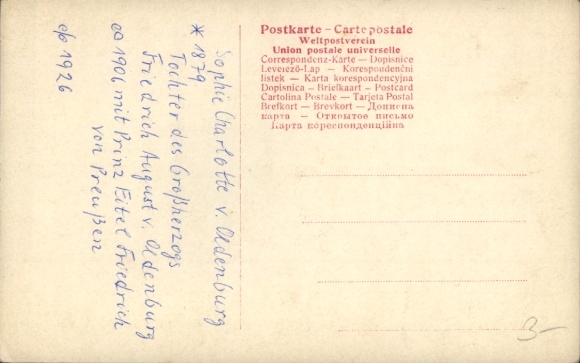 Sophie Charlotte v. Oldenburg
* 1879
Tochter des Großherzogs
Friedrich August v. Oldenburg
∞ 1906 mit Prinz Eitel Friedrich
von Preußen
o/o 1926
Postkarte – Carte postale
Weltpostverein
Union postale universelle
Correspondenz-Karte – Dopisnice
Levelező-Lap – Korespondenční
listek – Karta korespondencyjna
Dopisnica – Briefkaart – Postcard
Cartolina Postale – Tarjeta Postal
Brefkort – Brevkort – Дописна
карта – Открытое письмо
Карта кореспонденційна
3–